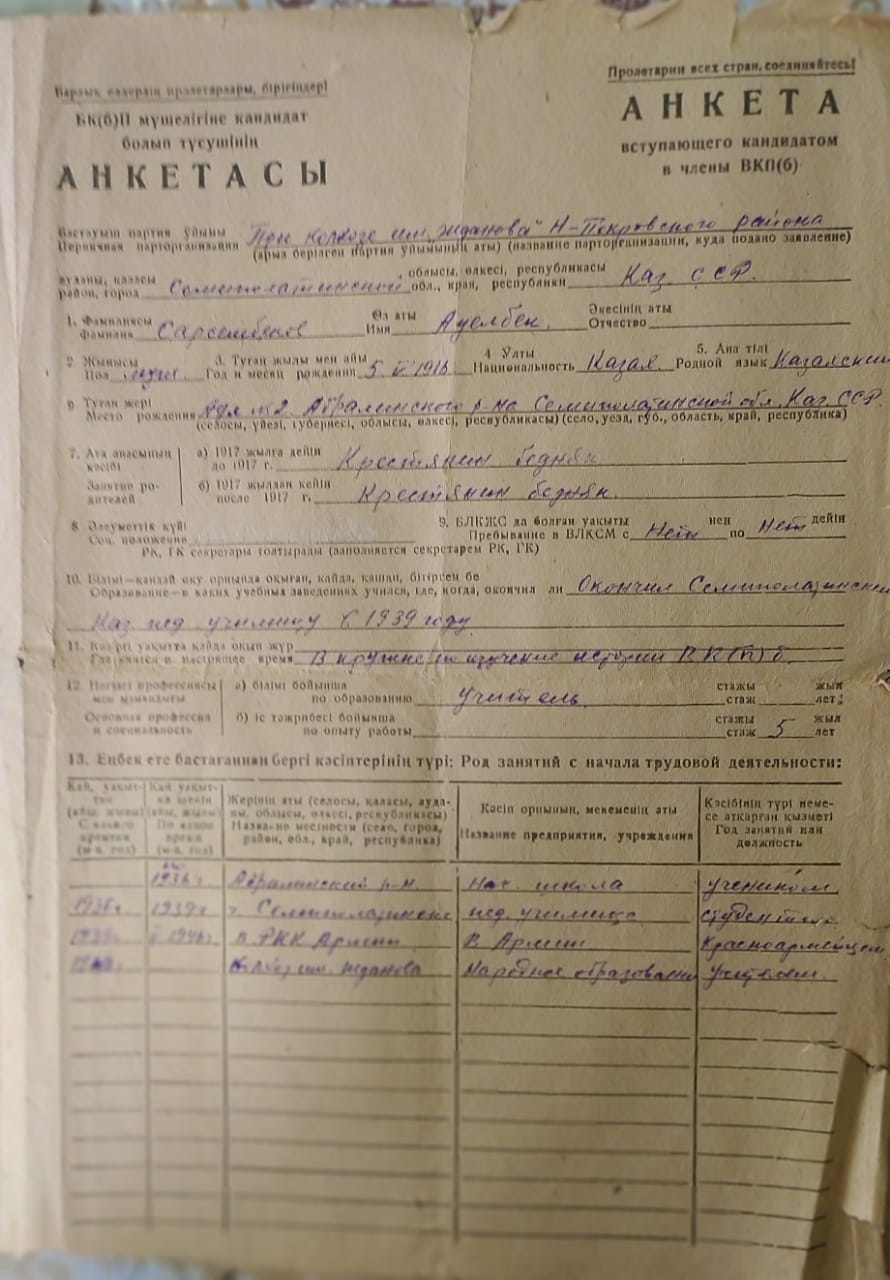 Барлық елдердің пролетарлары, бірігіңдер!
БК(б)П мүшелігіне кандидат
болып түсушінің
АНКЕТАСЫ
Пролетарии всех стран, соединяйтесь!
АНКЕТА
вступающего кандидатом
в члены ВКП(б)
Бастауыш партия ұйымы
Первичная парторганизация При колхозе им. "Жданова" Н-Покровского района
(арыз берілген партия ұйымының аты) (название парторганизации, куда подано заявление)
ауданы, қаласы , облысы, өлкесі, республикасы
район, город Семипалатинской обл., край, республики Каз ССР.
1. Фамилиясы Өз аты Әкесінің аты
Фамилия Сарсембенов Имя Ауелбек. Отчество
2 Жынысы 3. Туған жылы мен айы 4 Ұлты 5. Ана тілі
Пол муж. Год и месяц рождения 5 1916 Национальность Казах Родной язык Казахский
6 Туған жері
Место рождения Аул №2. Абралинского р-на Семиполатинской обл. Каз. ССР.
(селосы, уйезі, губерн​есі, облысы, өлкесі, республикасы) (село, уезд, губ., область, край, республика)
7. Ата анасының кәсібі
Занятие родителей
а) 1917 жылға дейін
до 1917 г. Крестянин бедняк
б) 1917 жылдан кейін
после 1917 г. Крестянин бедняк.
8 Әлеуметтік күйі 9. БЛКЖС да болған уақыты нен дейін
Соц. положение Пребывание в ВЛКСМ с Нет по Нет
РК, ГК секретары толтырады (заполняется секретарем РК, ГК)
10. Білімі—қандай оқу орнында оқыған, қайда, қашан, бітірген бе
Образование—в каких учебных заведениях учился, где, когда, окончил ли Окончил Семиполатинский
Каз пед училищу в 1939 году
11. Қазіргі уақытта қайда оқып жүр
Где учится в настоящее время В кружке по изучение истории ВК(п)б.
12. Негізгі профессиясы мен мамандығы
Основная профессия и специальность
а) білімі бойынша стажы жыл
по образованию учитель стаж лет
б) іс тәжрибесі бойынша стажы жыл
по опыту работы стаж 5 лет
13. Еңбек ете бастағаннан бергі кәсіптерінің түрі: Род занятий с начала трудовой деятельности:
Қай уақыттан (айы, жылы)
С какого времени (м-ц, год)
Қай уақытқа шейін (айы, жылы)
По какое время (м-ц, год)
Жерінің аты (селосы, қаласы, ауданы, облысы, өлкесі, республикасы)
Название местности (село, город, район, обл., край, республика)
Кәсіп орнының, мекеменің аты
Название предприятия, учреждения
Кәсібінің түрі немесе атқарған қызметі
Год занятий или должность
1936 г. Абралинский р-н. Нач. школа учеником
1936 г. 1939 г г. Семиполатинске пед. училище студентом
1946 г. в РКК Армии В Армии Красноармейцем
Колхоз им. Жданова Народное образование учителем.